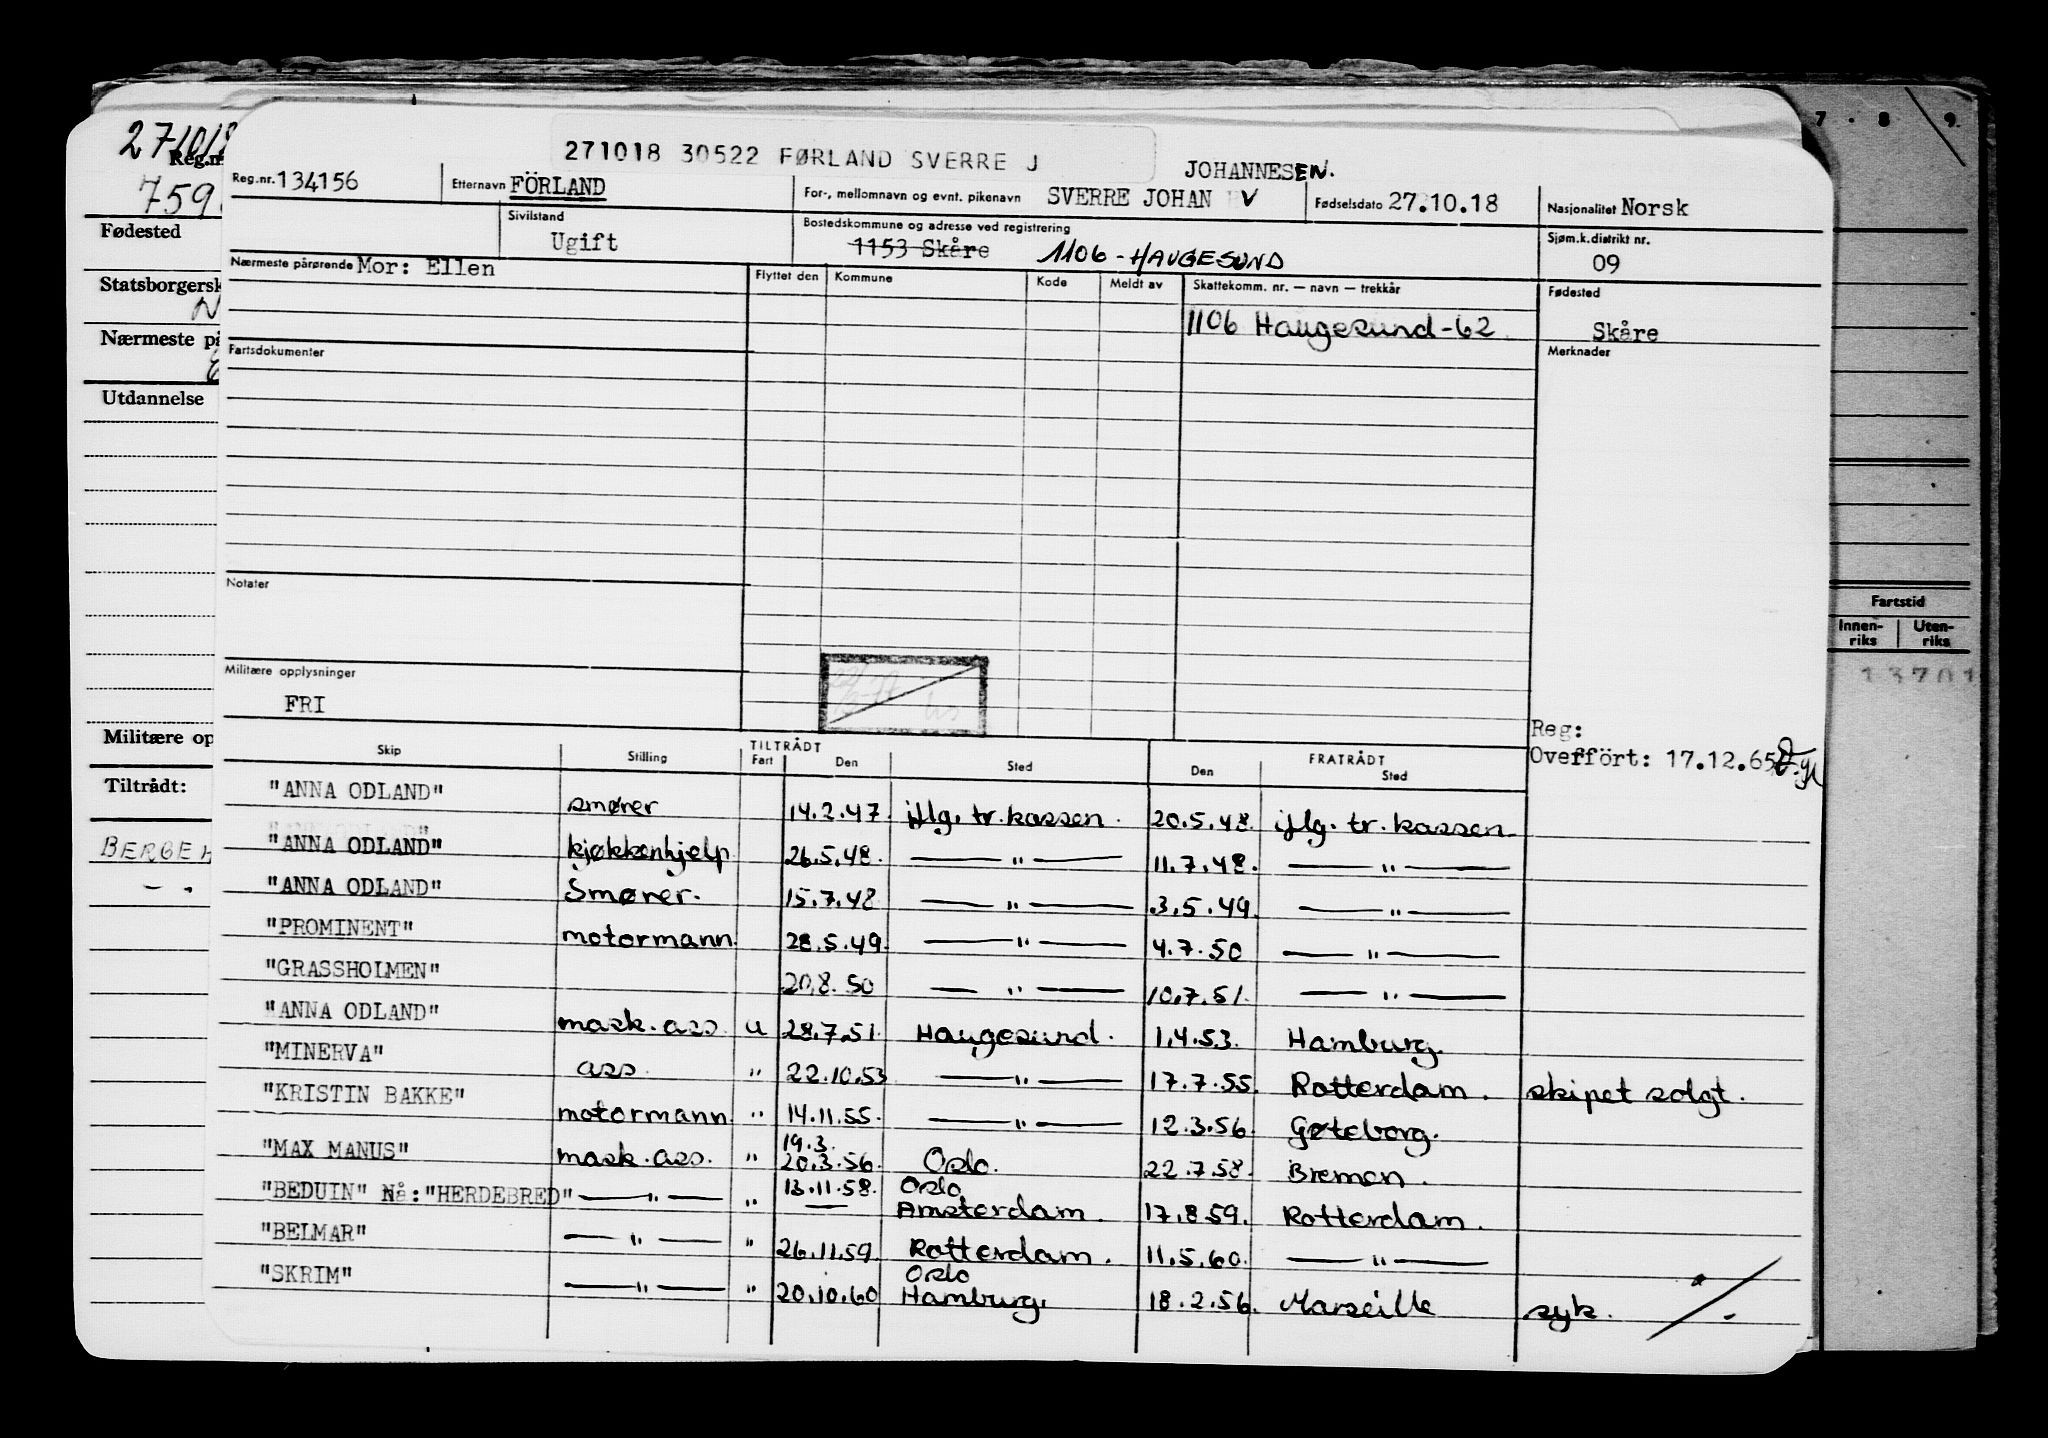 271018
Reg.n
759
Fødested
Statsborgersk
N
Nærmeste på
E
Utdannelse
Militære op
Tiltrådt:
BERGE H
271018 30522 FØRLAND SVERRE J
JOHANNESEN.
Reg.nr. 134156 Etternavn FÖRLAND For-, mellomnavn og evnt. pikenavn SVERRE JOHAN V Fødselsdato 27.10.18 Nasjonalitet Norsk
Sivilstand Ugift Bostedskommune og adresse ved registrering 1153 Skåre 1106 - HAUGESUND Sjøm.k.distrikt nr. 09
Nærmeste pårørende Mor: Ellen Flyttet den Kommune Kode Meldt av Skattekomm. nr. — navn — trekkår Fødested
1106 Haugesund-62 Skåre
Fartsdokumenter Merknader
Notater
Militære opplysninger
FRI
Reg:
Overfört: 17.12.65
Skip Stilling TILTRÅDT Fart Den Sted FRATRÅDT Den Sted
"ANNA ODLAND" smører 14.2.47. iflg. tr. kassen. 20.5.48. iflg. tr. kassen
"ANNA ODLAND" kjøkkenhjelp 26.5.48. — " — 11.7.48. — " —
"ANNA ODLAND" Smører. 15.7.48 — " — 3.5.49. — " —
"PROMINENT" motormann. 28.5.49. — " — 4.7.50 — " —
"GRASSHOLMEN" 20.8.50 — " — 10.7.51. — " —
"ANNA ODLAND" mask.ass. u 28.7.51. Haugesund. 1.4.53. Hamburg.
"MINERVA" ass. " 22.10.53 — " — 17.7.55. Rotterdam. skipet solgt.
"KRISTIN BAKKE" motormann. " 14.11.55. — " — 12.3.56. Gøteborg.
19.3.
"MAX MANUS" mask.ass. " 20.3.56. Oslo. 22.7.58. Bremen.
13.11.58. Oslo
"BEDUIN" Nå: "HERDEBRED" — " — " — Amsterdam. 17.8.59. Rotterdam.
"BELMAR" — " — " 26.11.59. Rotterdam. 11.5.60. — " —
Oslo
"SKRIM" — " — " 20.10.60 Hamburg. 18.2.56. Marseille syk.
7 · 8 9.
Fartstid
Innen-riks Uten-riks
13701